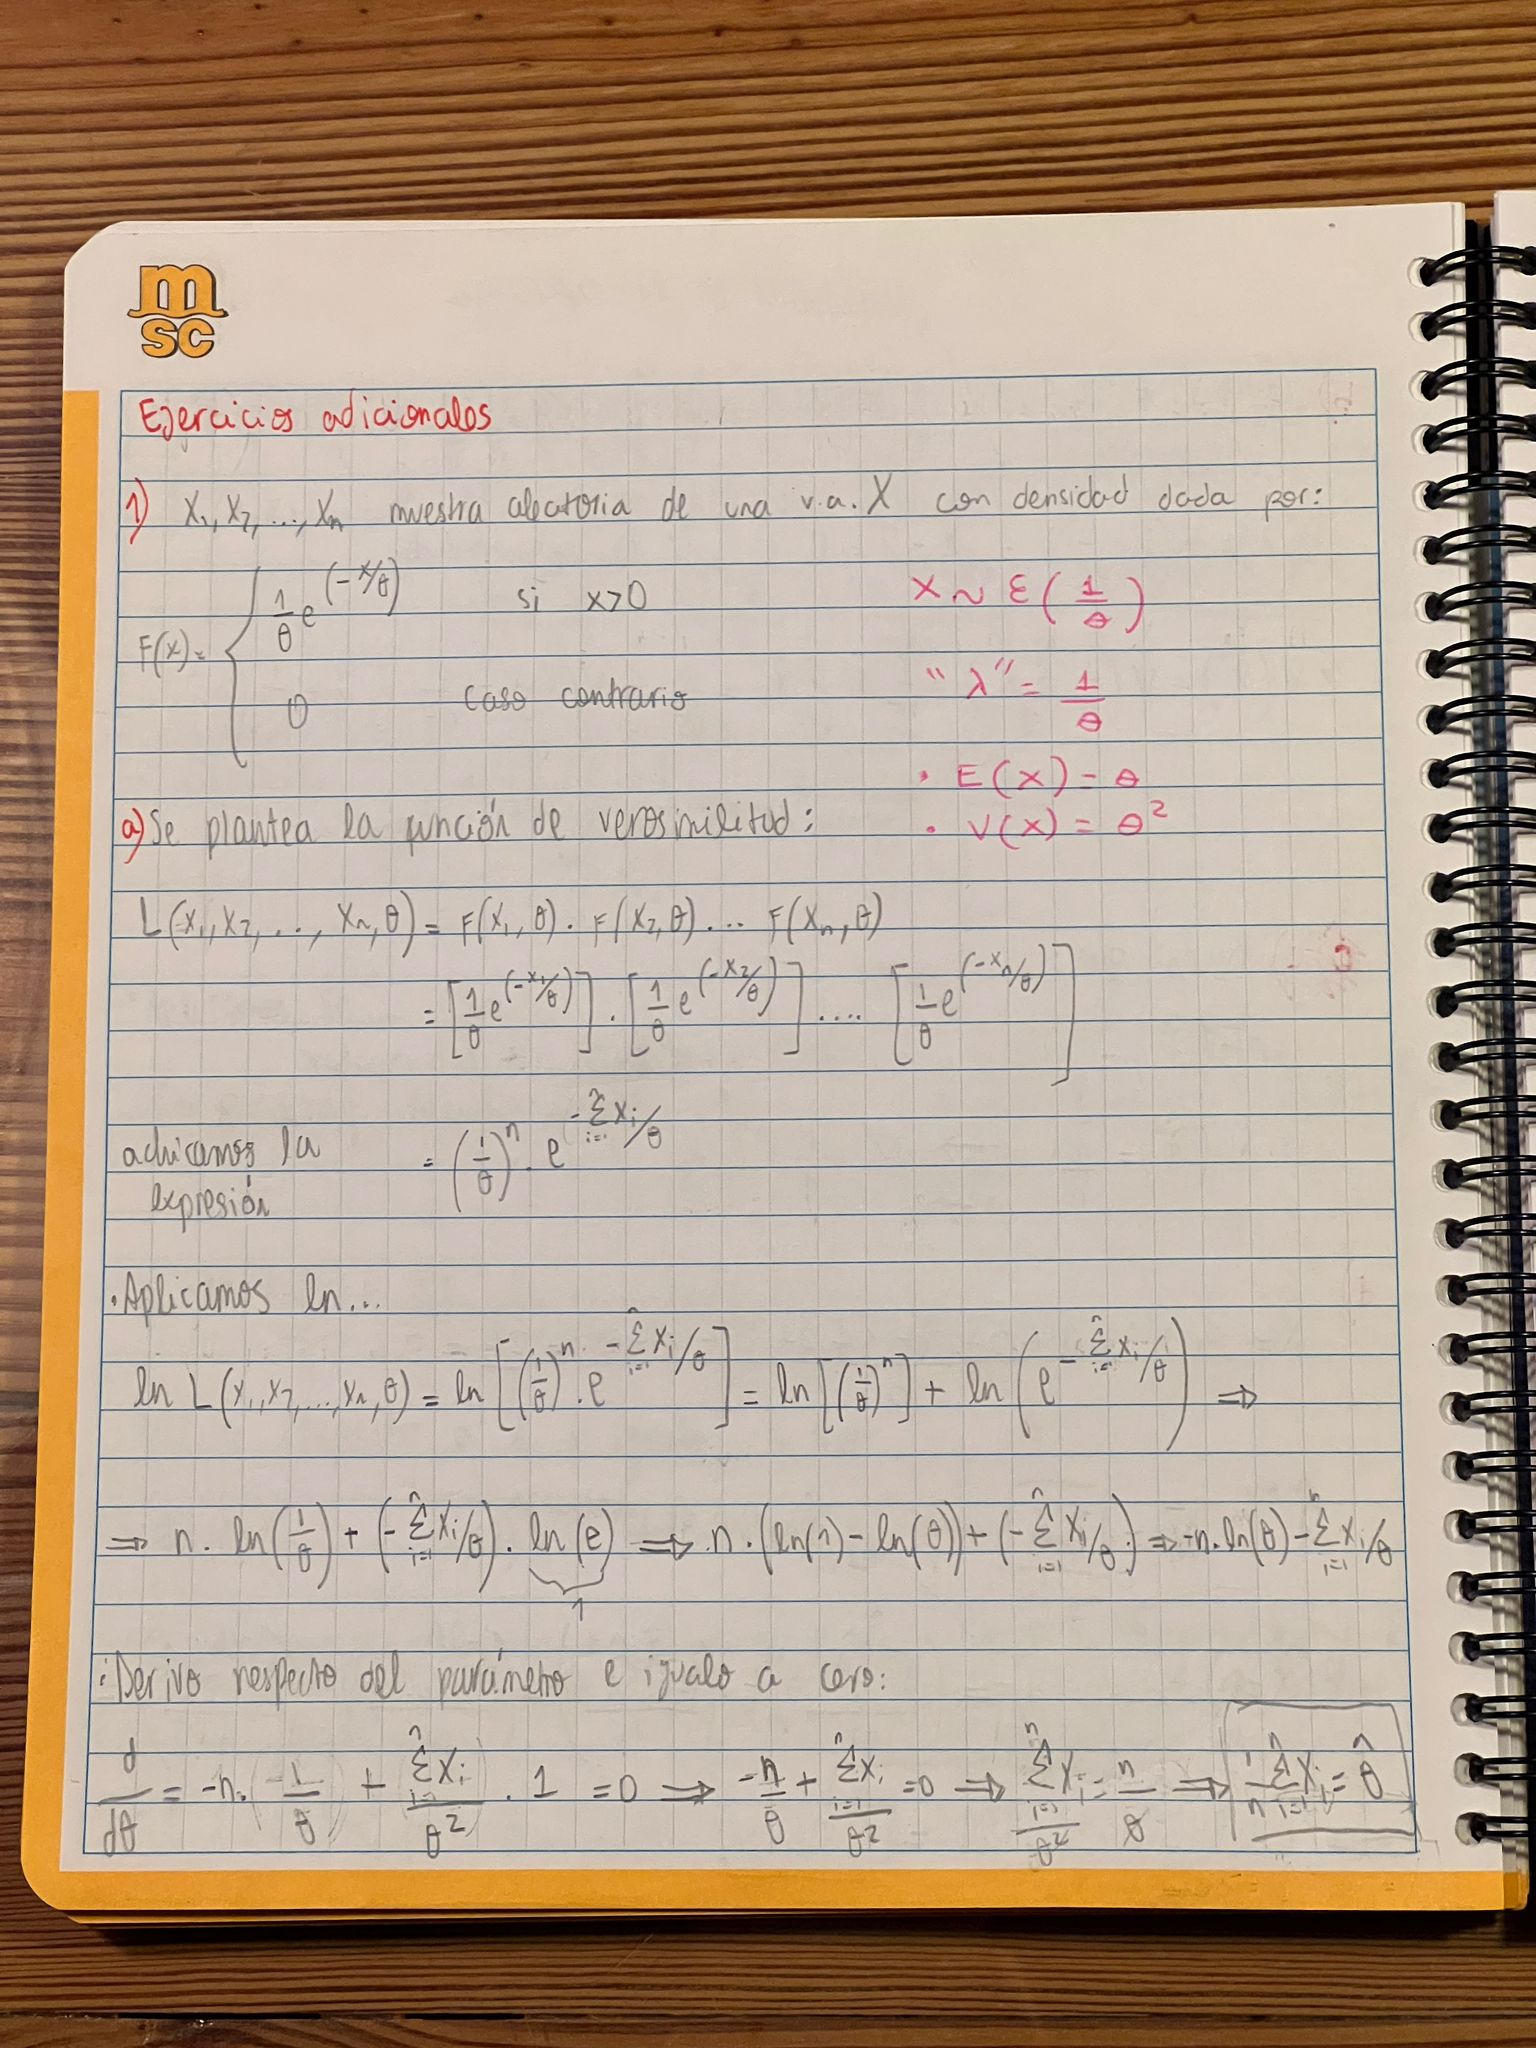 m
sc
Ejercicios adicionales
1) X₁, X₂, ..., Xn muestra aleatoria de una v.a. X con densidad dada por:
F(x) = { 1/θ e^(-x/θ) si x>0
0 caso contrario
X ~ Ɛ(1/θ)
"λ" = 1/θ
• E(X) = θ
• V(X) = θ²
a) Se plantea la función de verosimilitud:
L(x₁, x₂, ..., xn, θ) = F(x₁, θ) . F(x₂, θ) ... F(xn, θ)
= [1/θ e^(-x₁/θ)] . [1/θ e^(-x₂/θ)] .... [1/θ e^(-xn/θ)]
achicamos la expresión = (1/θ)^n . e^(-Σ_{i=1}^n xi/θ)
• Aplicamos ln...
ln L(x₁, x₂, ..., xn, θ) = ln [(1/θ)^n . e^(-Σ_{i=1}^n xi/θ)] = ln [(1/θ)^n] + ln (e^(-Σ_{i=1}^n xi/θ)) ⇒
⇒ n . ln(1/θ) + (-Σ_{i=1}^n xi/θ) . ln(e) ⇒ n . (ln(1) - ln(θ)) + (-Σ_{i=1}^n xi/θ) ⇒ -n . ln(θ) - Σ_{i=1}^n xi/θ
1
• Derivo respecto del parámetro e igualo a cero:
d/dθ = -n . (1/θ) + Σ_{i=1}^n xi/θ² . 1 = 0 ⇒ -n/θ + Σ_{i=1}^n xi/θ² = 0 ⇒ Σ_{i=1}^n xi/θ² = n/θ ⇒ 1/n Σ_{i=1}^n xi = θ̂